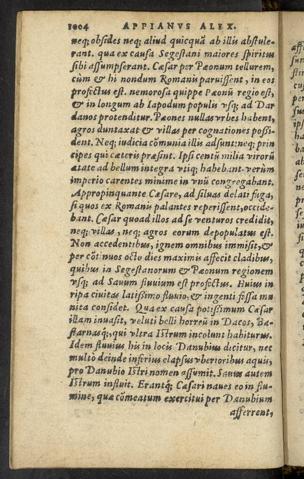 1004 APPIANVS ALEX.
neq; obsides neq; aliud quicquā ab illis abstule-
rant. qua ex causa Segestani maiores spiritus
sibi assumpserant. Cæsar per Pæonum tellurem,
cùm & hi nondum Romanis paruissent, in eos
profectus est. nemorosa quippe Pæonū regio est,
& in longum ab Iapodum populis vsq; ad Dar
danos protenditur. Pæones nullas vrbes habent,
agros duntaxat & villas per cognationes possi-
dent. Neq; iudicia cōmunia illis adsunt: neq; prin
cipes qui cæteris præsint. Ipsi centū milia virorū
ætate ad bellum integra vtiq; habebant. verùm
imperio carentes minime in vnū congregabant.
Appropinquante Cæsare, ad siluas delati fuga,
si quos ex Romanis palantes reperissent, occide-
bant. Cæsar quoad illos ad se venturos credidit,
neq; villas, neq; agros eorum depopulatus est.
Non accedentibus, ignem omnibus immisit, &
per cōtinuos octo dies maximis affecit cladibus,
quibus in Segestanorum & Pæonum regionem
vsq; ad Sauum fluuium est profectus. Huius in
ripa ciuitas latissimo fluuio, & ingenti fossa mu
nita consīdet. Qua ex causa potissimum Cæsar
illam inuasit, veluti belli horreū in Dacos, Ba-
starnasq;, qui vltra Istrum incolunt habiturus.
Idem fluuius hic in locis Danubius dicitur, nec
multò deinde inferius elapsus vberioribus aquis,
pro Danubio Istri nomen assumit. Sauus autem
Istrum influit. Erantq; Cæsari naues eo in flu-
mine, quæ cōmeatum exercitui per Danubium
afferrent,